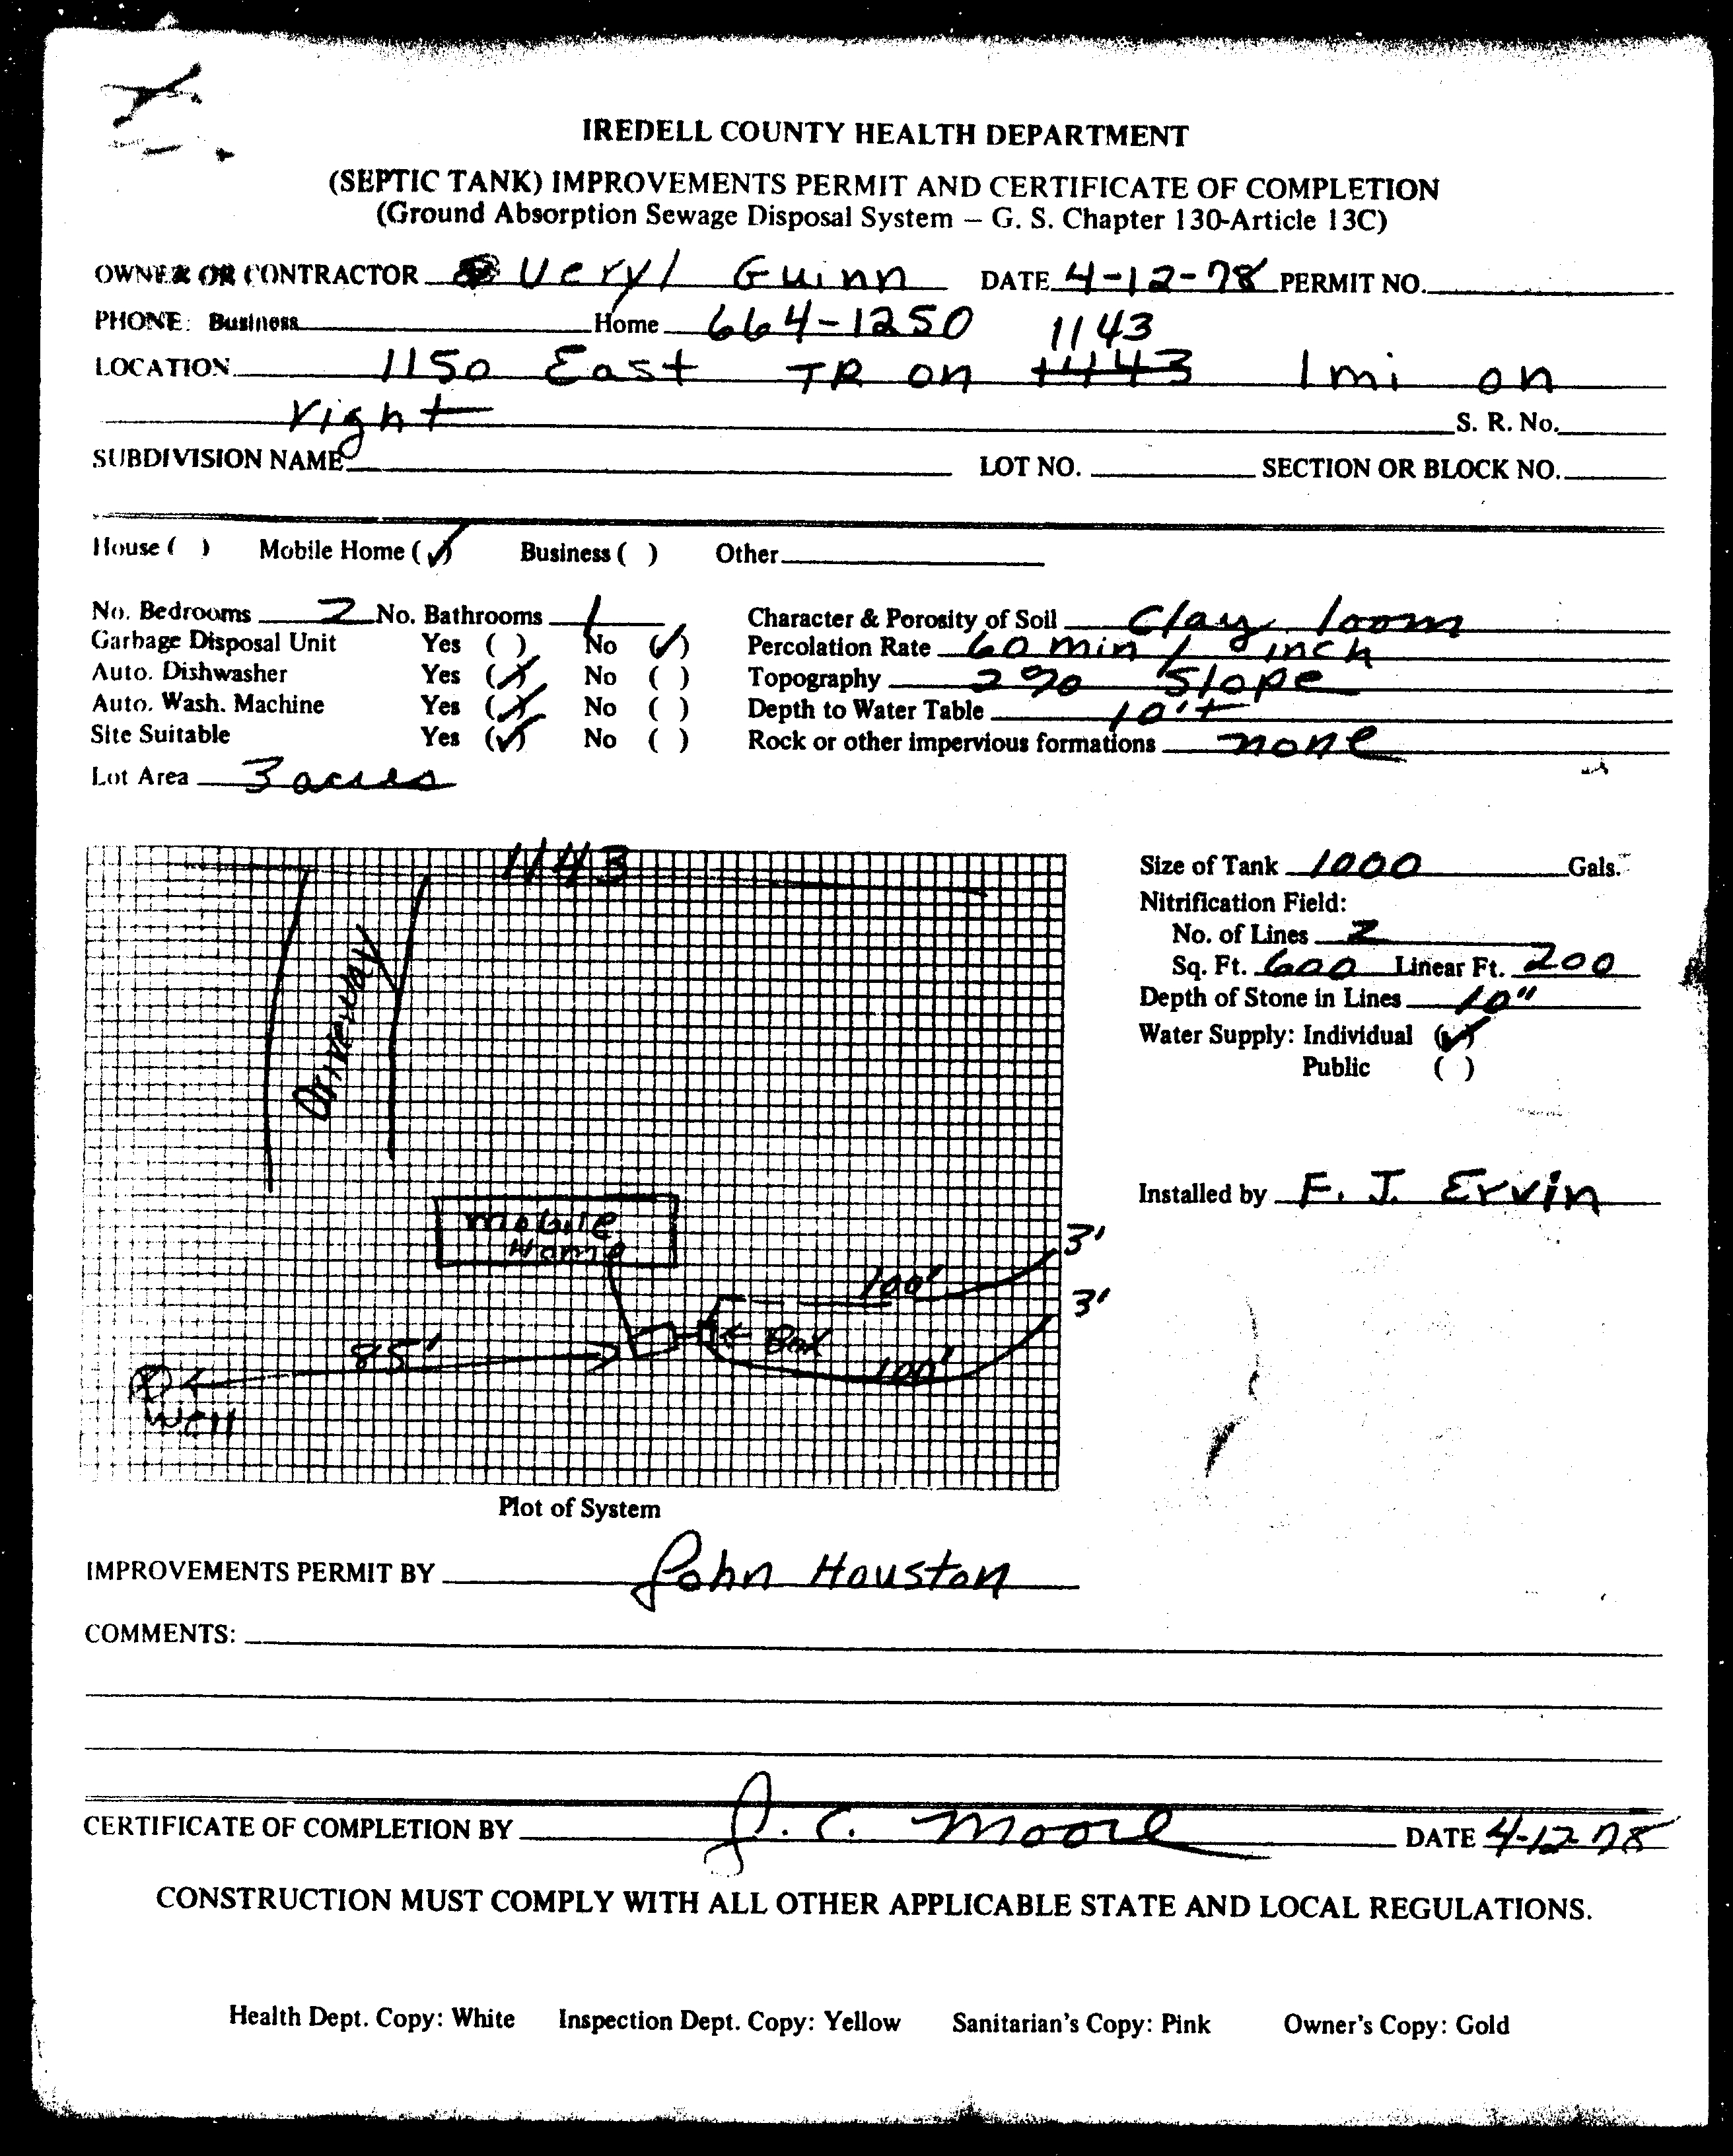 IREDELL COUNTY HEALTH DEPARTMENT
(SEPTIC TANK) IMPROVEMENTS PERMIT AND CERTIFICATE OF COMPLETION
(Ground Absorption Sewage Disposal System – G. S. Chapter 130-Article 13C)
OWNER OR CONTRACTOR Veryl Guinn DATE 4-12-78 PERMIT NO.
PHONE: Business Home 664-1250 1143
LOCATION 1150 East TR on 1143 1 mi on
right S. R. No.
SUBDIVISION NAME LOT NO. SECTION OR BLOCK NO.
House ( ) Mobile Home (✓) Business ( ) Other
No. Bedrooms 2 No. Bathrooms 1 Character & Porosity of Soil Clay loom
Garbage Disposal Unit Yes ( ) No (✓) Percolation Rate 60 min / inch
Auto. Dishwasher Yes (✓) No ( ) Topography 2% Slope
Auto. Wash. Machine Yes (✓) No ( ) Depth to Water Table 10'+
Site Suitable Yes (✓) No ( ) Rock or other impervious formations none
Lot Area 3 acres
1143
Driveway
Mobile
Home
3'
100'
3'
85'
Box
100'
Well
Size of Tank 1000 Gals.
Nitrification Field:
No. of Lines 2
Sq. Ft. 600 Linear Ft. 200
Depth of Stone in Lines 10"
Water Supply: Individual (✓)
Public ( )
Installed by F. J. Ervin
Plot of System
IMPROVEMENTS PERMIT BY John Houston
COMMENTS:
CERTIFICATE OF COMPLETION BY J. C. Moore DATE 4-12-78
CONSTRUCTION MUST COMPLY WITH ALL OTHER APPLICABLE STATE AND LOCAL REGULATIONS.
Health Dept. Copy: White Inspection Dept. Copy: Yellow Sanitarian's Copy: Pink Owner's Copy: Gold